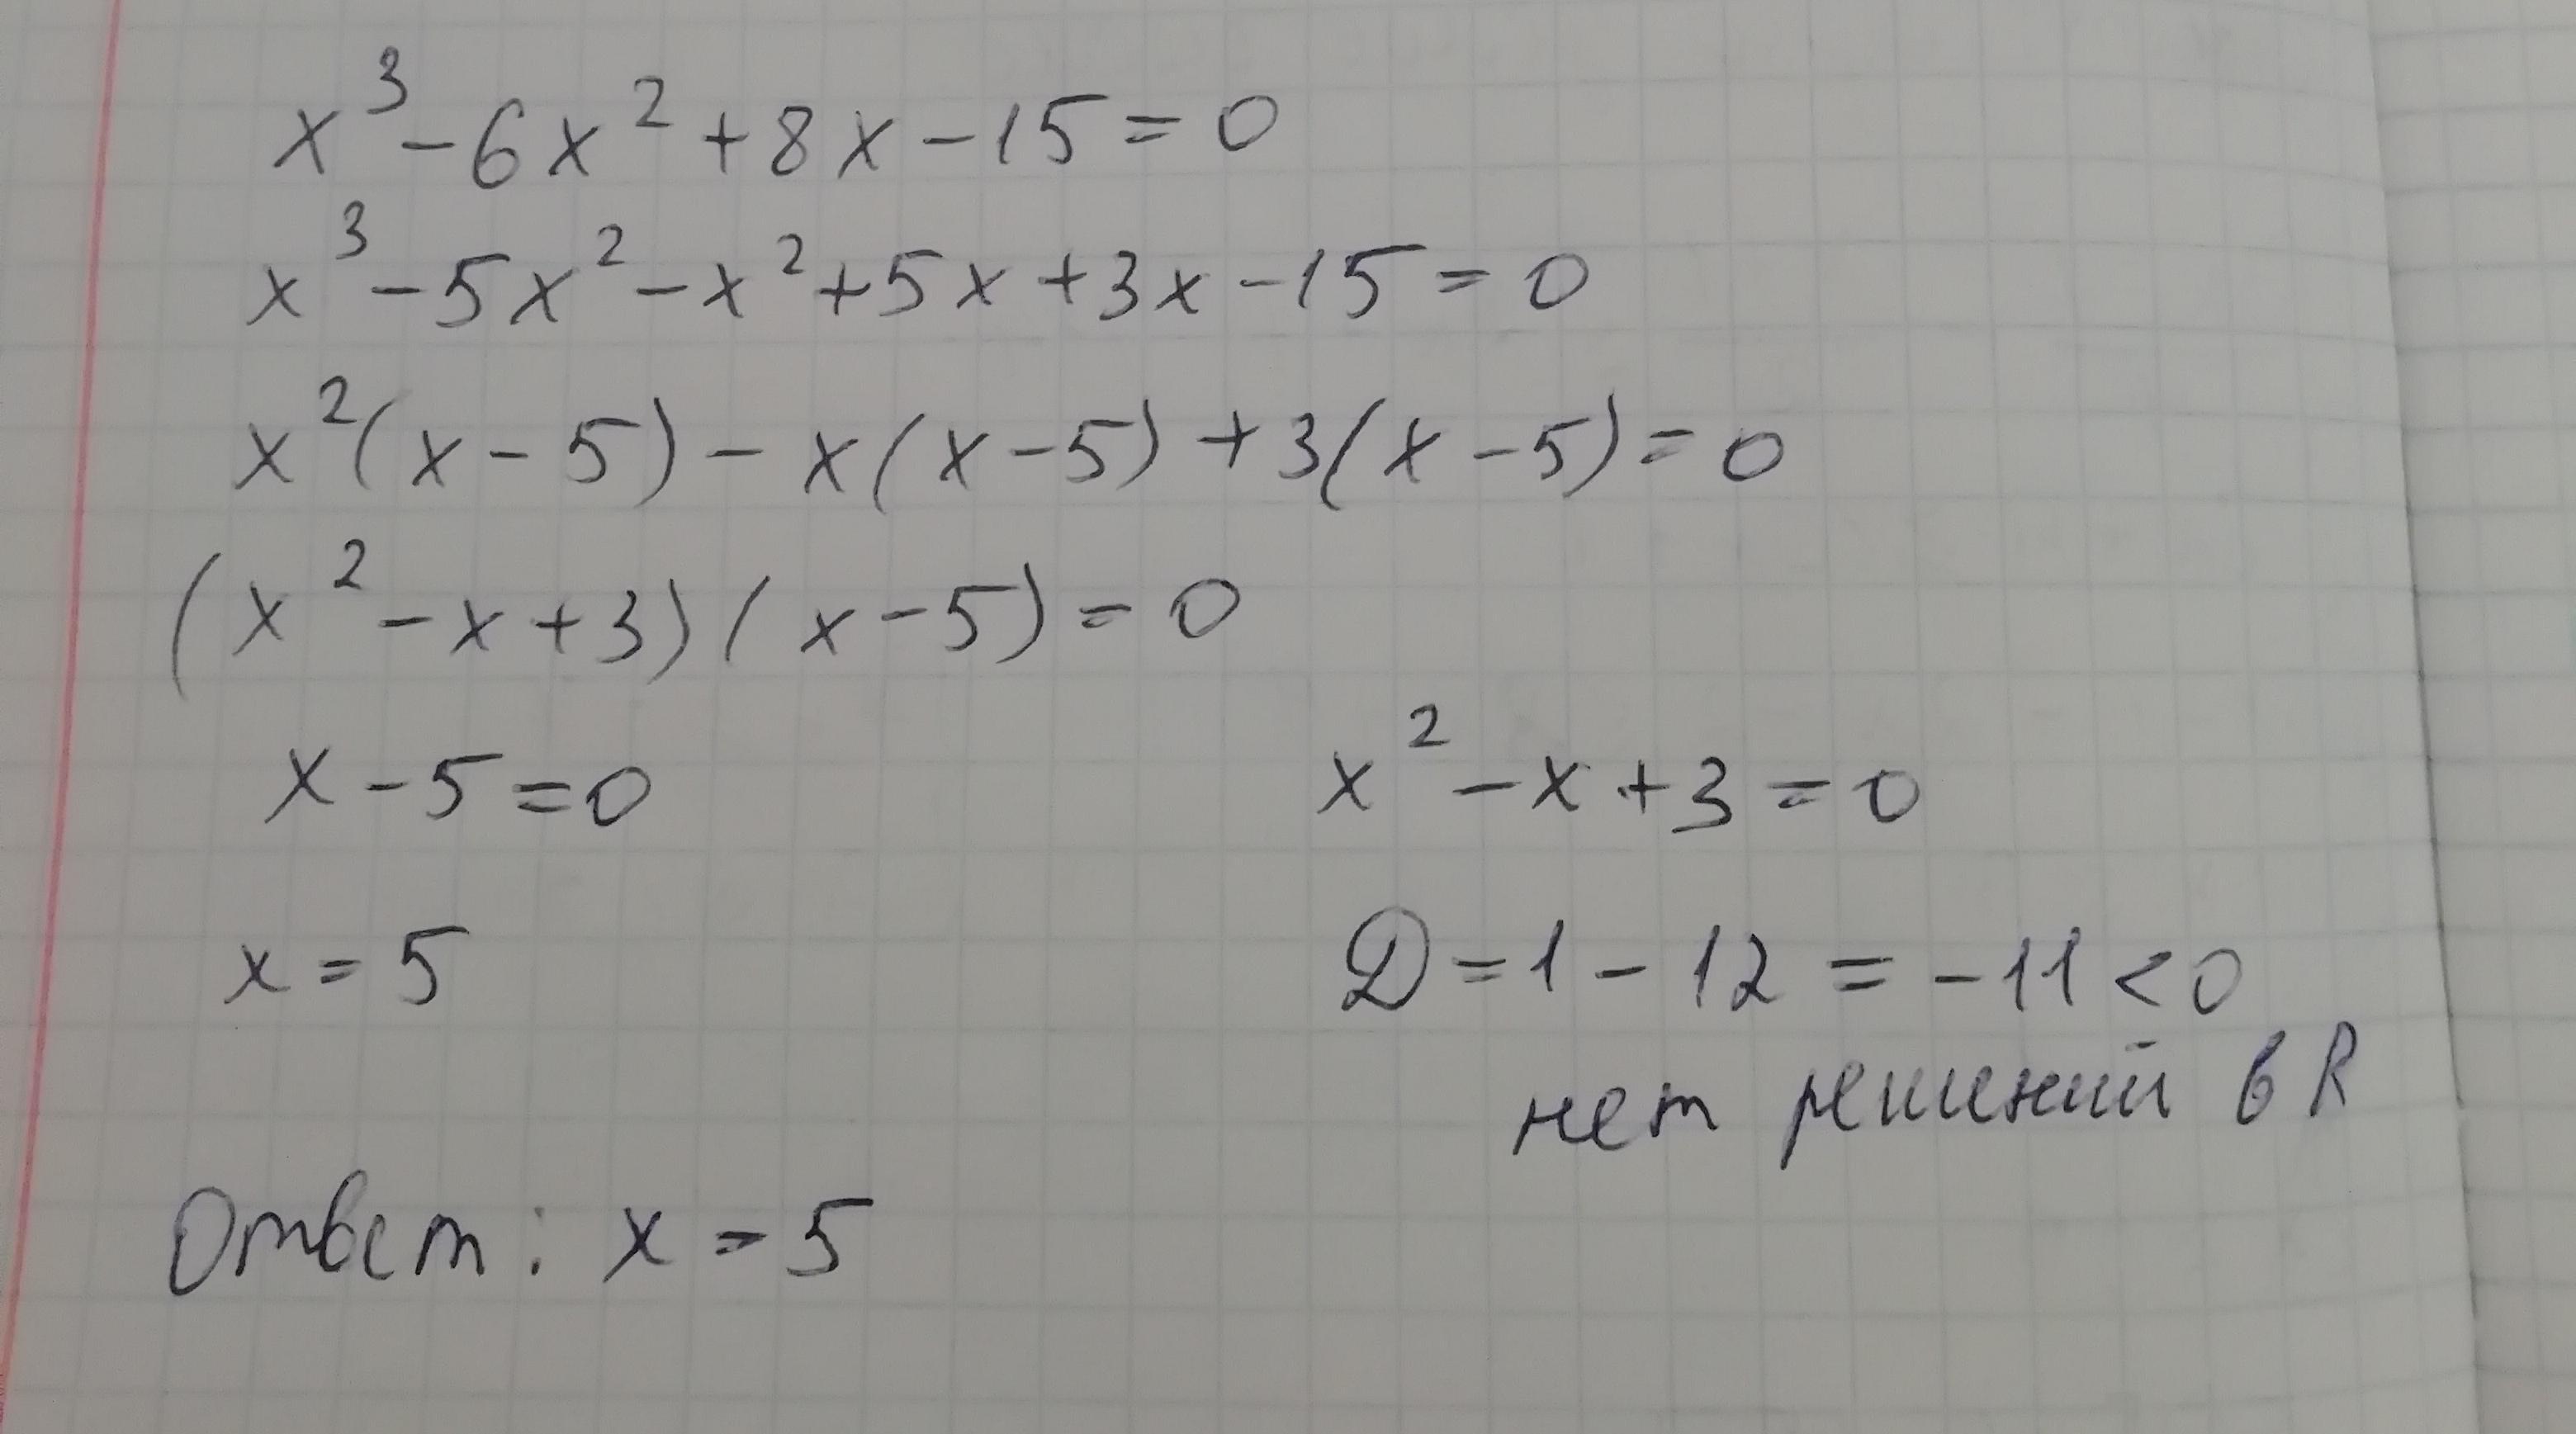 x³ - 6x² + 8x - 15 = 0
x³ - 5x² - x² + 5x + 3x - 15 = 0
x²(x - 5) - x(x - 5) + 3(x - 5) = 0
(x² - x + 3)(x - 5) = 0
x - 5 = 0
x² - x + 3 = 0
x = 5
D = 1 - 12 = -11 < 0
нет решений в R
Ответ: x = 5